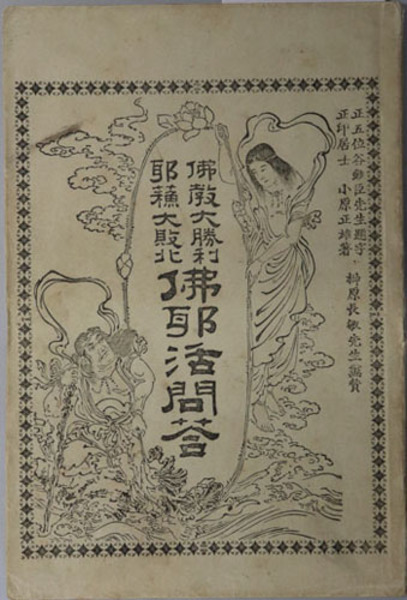 正五位谷鉄臣先生題字
正印居士 小原正雄著
榊原長敏先生画賛
佛教大勝利
耶蘓大敗北
佛耶活問答